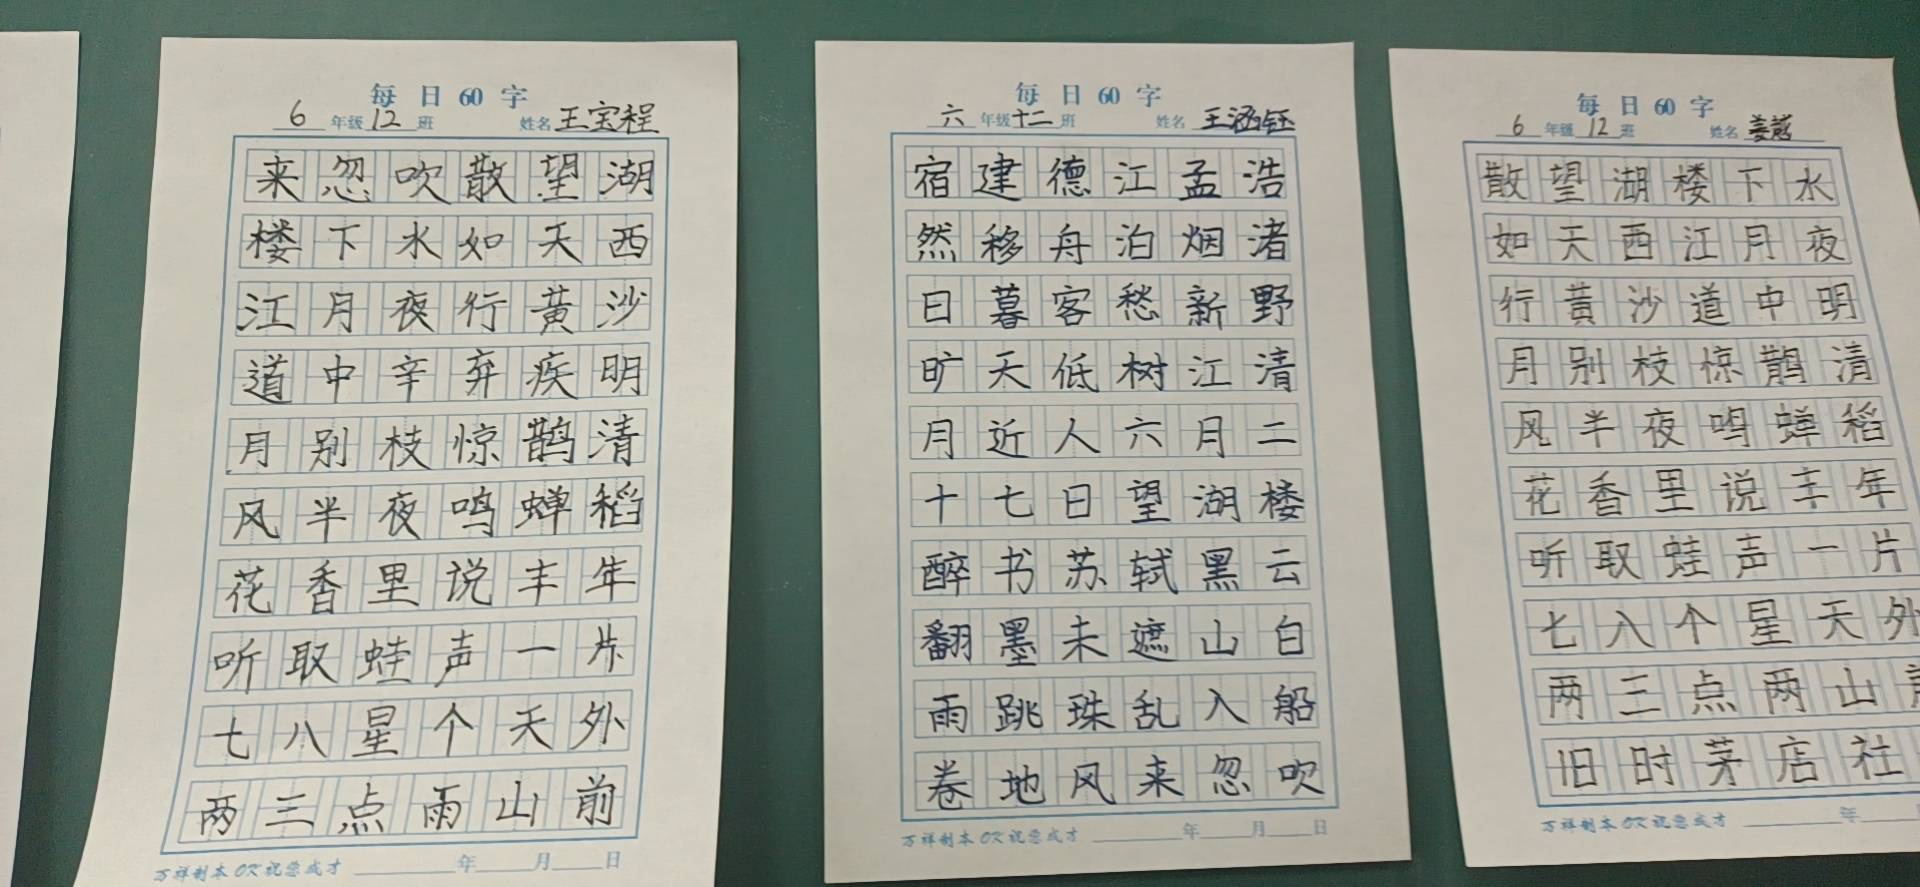 每日60字
6年级12班 姓名王宝程
来忽吹散望湖
楼下水如天西
江月夜行黄沙
道中辛弃疾明
月别枝惊鹊清
风半夜鸣蝉稻
花香里说丰年
听取蛙声一片
七八星个天外
两三点雨山前
万祥制本OK祝您成才 年 月 日
每日60字
六年级十二班 姓名王涵钰
宿建德江孟浩
然移舟泊烟渚
日暮客愁新野
旷天低树江清
月近人六月二
十七日望湖楼
醉书苏轼黑云
翻墨未遮山白
雨跳珠乱入船
卷地风来忽吹
万祥制本OK祝您成才 年 月 日
每日60字
6年级12班 姓名姜
散望湖楼下水
如天西江月夜
行黄沙道中明
月别枝惊鹊清
风半夜鸣蝉稻
花香里说丰年
听取蛙声一片
七八个星天外
两三点两山
旧时茅店社
万祥制本OK祝您成才 年